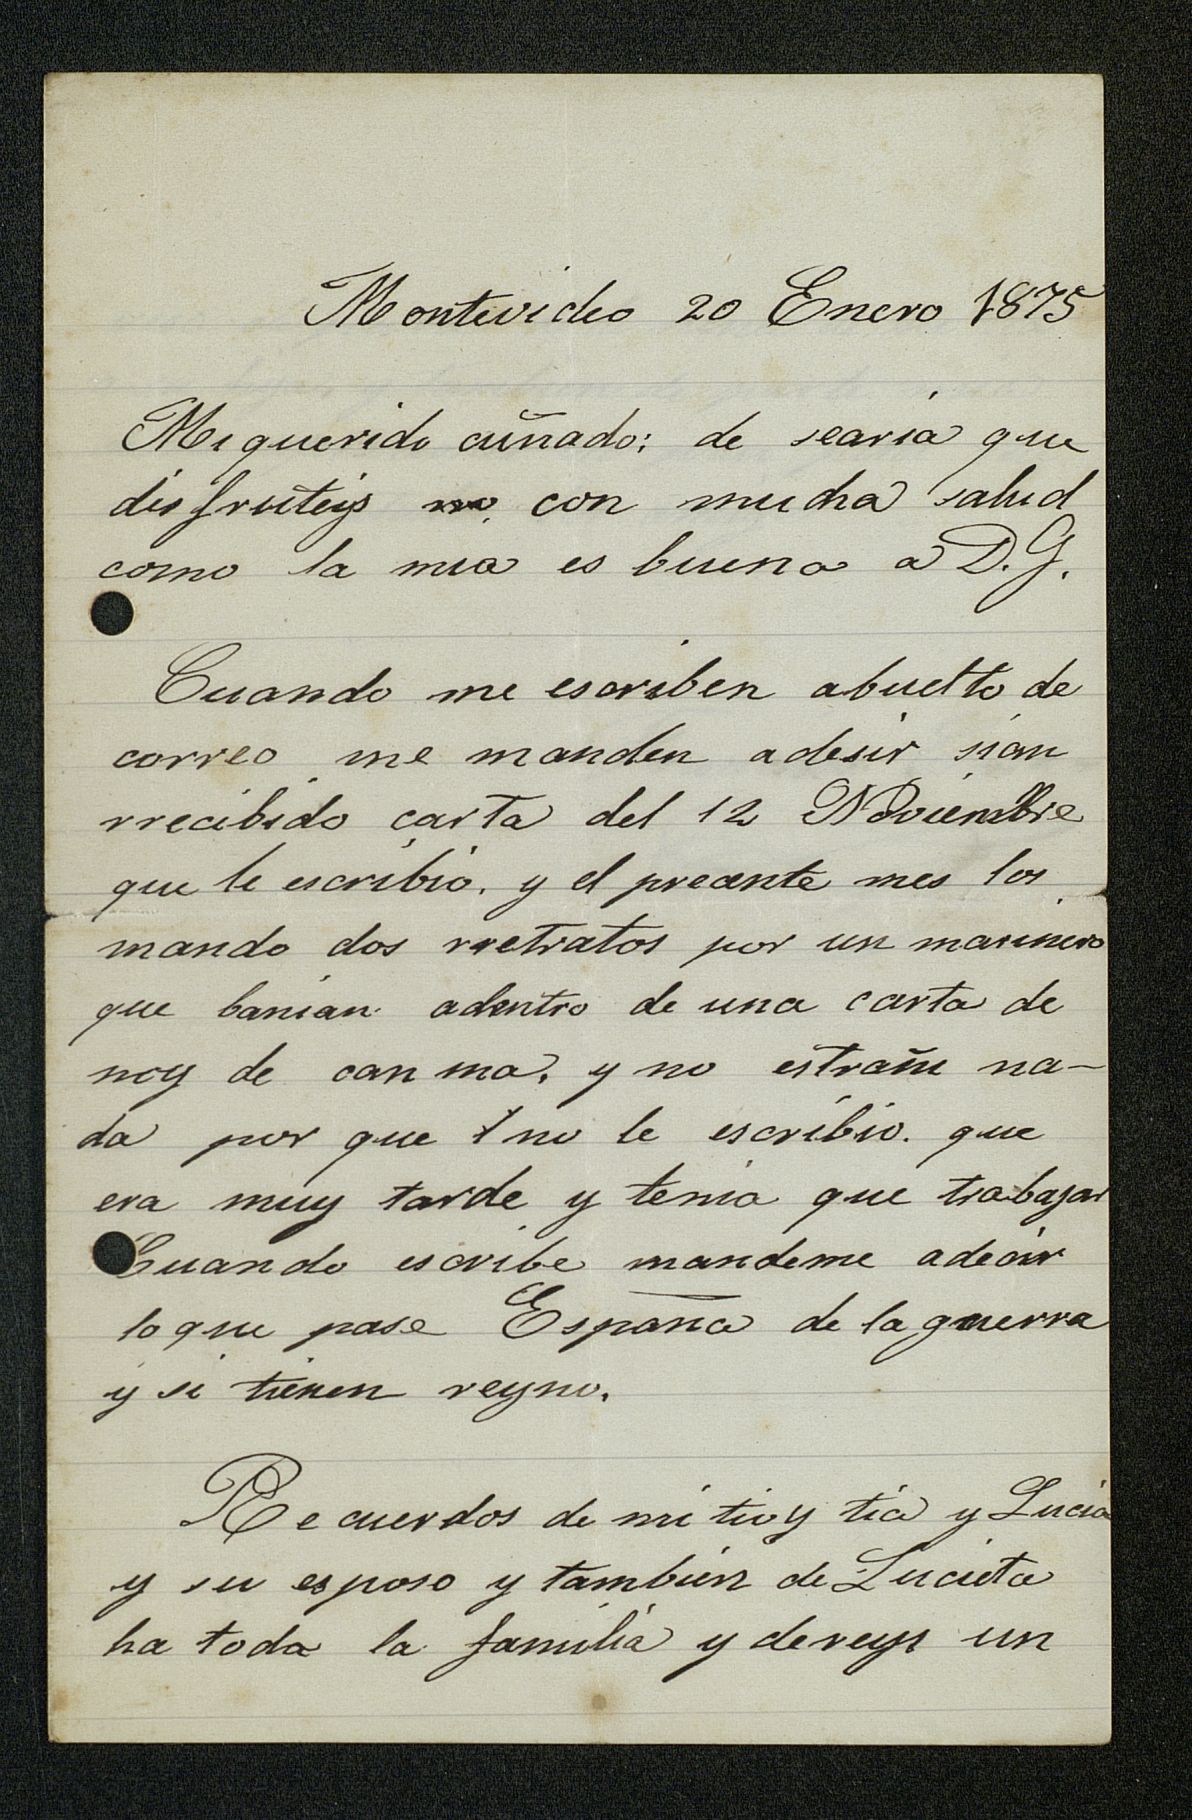 Montevideo 20 Enero 1875
Mi querido cuñado; de searia que
disfruteis con mucha salud
como la mia es buena a D. G.
Cuando me escriben abuelto de
correo me manden adesir sian
rrecibido carta del 12 Noviembre
que le escribio. y el precente mes los
mando dos rretratos por un marinero
que banian adentro de una carta de
noy de can ma. y no estrañe na-
da por que no le escribio. que
era muy tarde y tenia que trabajar
Cuando escribe mandeme adecir
lo que pase España de la guerra
y si tienen reyno.
Recuerdos de mi tio y tia y Lucia
y su esposo y tambien de Lucieta
ha toda la familia y dereys un